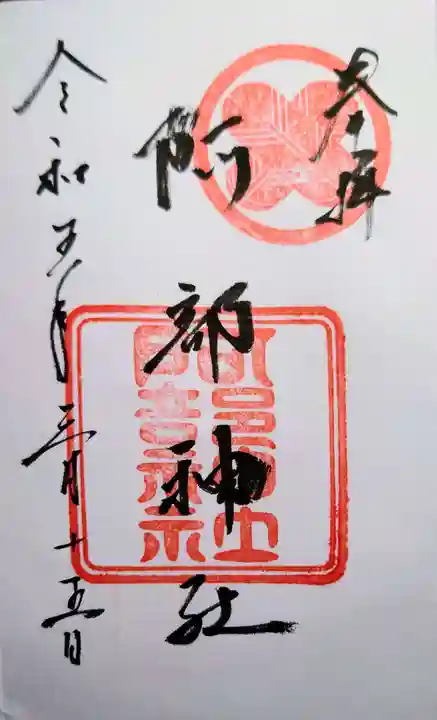 奉拝
阿部神社
令和五年三月十五日
阿部神社